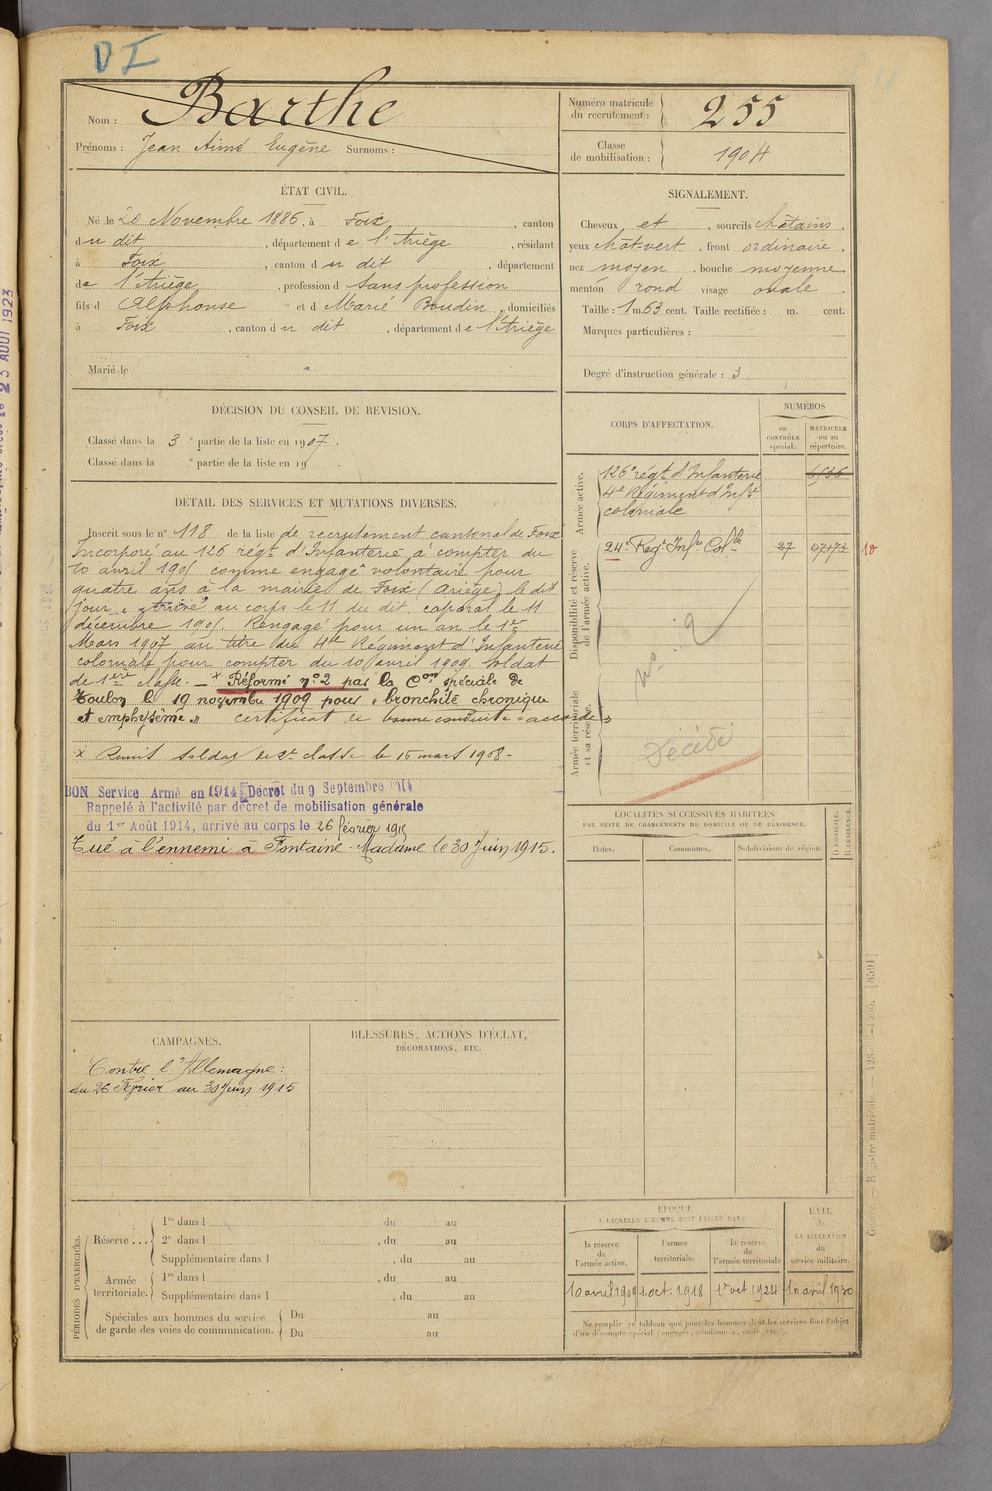 DI
Nom : Barthe
Prénoms : Jean Aimé Eugène Surnoms :
Numéro matricule du recrutement : 255
Classe de mobilisation : 1904
ÉTAT CIVIL.
Né le 20 Novembre 1886, à Foix, canton
du dit, département de l'Ariège, résidant
à Foix, canton du dit, département
de l'Ariège, profession d sans profession
fils d Alphonse et d Marie Boudin, domiciliés
à Foix, canton du dit, département de l'Ariège
Marié le
SIGNALEMENT.
Cheveux et, sourcils châtains,
yeux chât-vert, front ordinaire,
nez moyen, bouche moyenne
menton rond visage ovale.
Taille : 1 m. 63 cent. Taille rectifiée : m. cent.
Marques particulières :
Degré d'instruction générale : 3
DÉCISION DU CONSEIL DE REVISION.
Classé dans la 3e partie de la liste en 1907.
Classé dans la e partie de la liste en 19 .
DÉTAIL DES SERVICES ET MUTATIONS DIVERSES.
Inscrit sous le n° 118 de la liste de recrutement cantonal de Foix
Incorporé au 126 régt d'Infanterie à compter du
10 avril 190 comme engagé volontaire pour
quatre ans à la mairie de Foix (Ariège) le dit
jour, arrivé au corps le 11 du dit. caporal le 11
décembre 190 . Rengagé pour un an le 1er
Mars 1907 au titre du 4e Régiment d'Infanterie
coloniale pour compter du 10 avril 1909. Soldat
de 1ère classe. — x Réformé n° 2 par la Con spéciale de
Toulon le 19 novembre 1909 pour "bronchite chronique
et emphysème" certificat de bonne conduite "accordé"
x Remis soldat de 2e classe le 15 mars 1908 -
BON Service Armé en 1914 Décret du 9 Septembre 1914
Rappelé à l'activité par décret de mobilisation générale
du 1er Août 1914, arrivé au corps le 26 février 1915
Tué à l'ennemi à Fontaine-Madame le 30 Juin 1915.
CORPS D'AFFECTATION.
NUMÉROS
AU CONTRÔLE spécial.
MATRICULE ou au répertoire.
Armée active.
126e régt d'Infanterie
4e Régiment d'Infie
coloniale
Disponibilité et réserve de l'armée active.
24e Regt Infie Colle 27 07173 18
n° 2
Armée territoriale et sa réserve.
Décédé
LOCALITÉS SUCCESSIVES HABITÉES
PAR SUITE DE CHANGEMENTS DE DOMICILE OU DE RÉSIDENCE.
Dates. Communes. Subdivisions de région. D DOMICILE. R RÉSIDENCE.
CAMPAGNES.
Contre l'Allemagne :
du 26 Février au 30 Juin 1915
BLESSURES, ACTIONS D'ÉCLAT,
DÉCORATIONS, ETC.
PÉRIODES D'EXERCICES.
Réserve ...
1re dans l du au
2e dans l , du au
Supplémentaire dans l , du au
Armée territoriale.
1re dans l , du au
Supplémentaire dans l , du au
Spéciales aux hommes du service de garde des voies de communication.
Du au
Du au
ÉPOQUE
À LAQUELLE L'HOMME DOIT PASSER DANS
la réserve de l'armée active.
l'armée territoriale.
la réserve de l'armée territoriale
DATE de LA LIBÉRATION du service militaire.
10 avril 1909 1 oct. 1918 1er oct 1924 10 avril 1930
Ne remplir ce tableau que pour les hommes dont les services font l'objet
d'un décompte spécial (engagés, condamnés, omis, etc.)
23 AOUT 1923
Registre matricule.